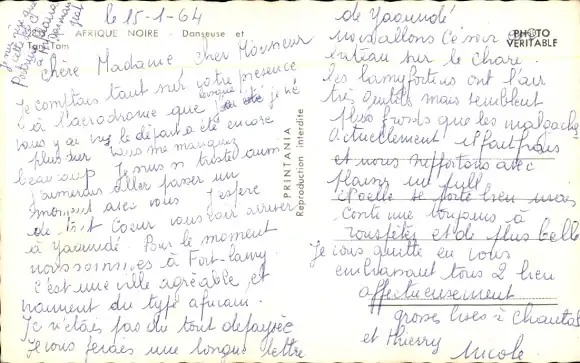 le 15-1-64
AFRIQUE NOIRE. - Danseuse et
Tam-Tam
Chère Madame cher Monsieur
Je comptais tant sur votre présence
à l'aérodrome que lorsque j'ai été je né
vous y ai vu le départ a été encore
plus dur vous me manquez
beaucoup Je suis si triste aussi
j'aimerais aller passer un
moment avec vous J'espère
de tout Coeur vous voir arriver
à Yaoundé. Pour le moment
nous sommes à Fort-Lamy.
C'est une ville agréable et
vraiment du type africain.
Je n'étais pas du tout dépaysée
Je vous ferais une longue lettre
PRINTANIA
Reproduction interdite
PHOTO
VERITABLE
de Yaoundé
nous allons ce soir
bateau sur le Chare.
les lamyfortins ont l'air
très gentils mais semblent
plus froids que les malgaches
Actuellement il fait frais
et nous supportons avec
plaisir un pull
Noelle se porte bien mais
continue toujours à
rouspéter et de plus belle
Je vous quitte en vous
embrassant tous 2 bien
affectueusement
grosses bises à Chantal
et Thierry
Nicole.